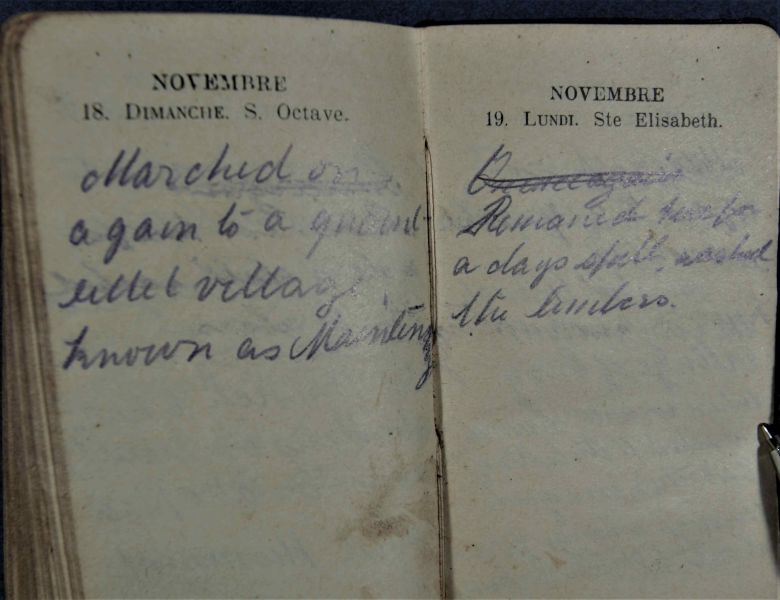 NOVEMBRE
18. DIMANCHE. S. Octave.
Marched on
again to a quaint
littel village,
known as Mainteng
NOVEMBRE
19. LUNDI. Ste Elisabeth.
Once again
Remained for
a days spell, washed
the limbers.